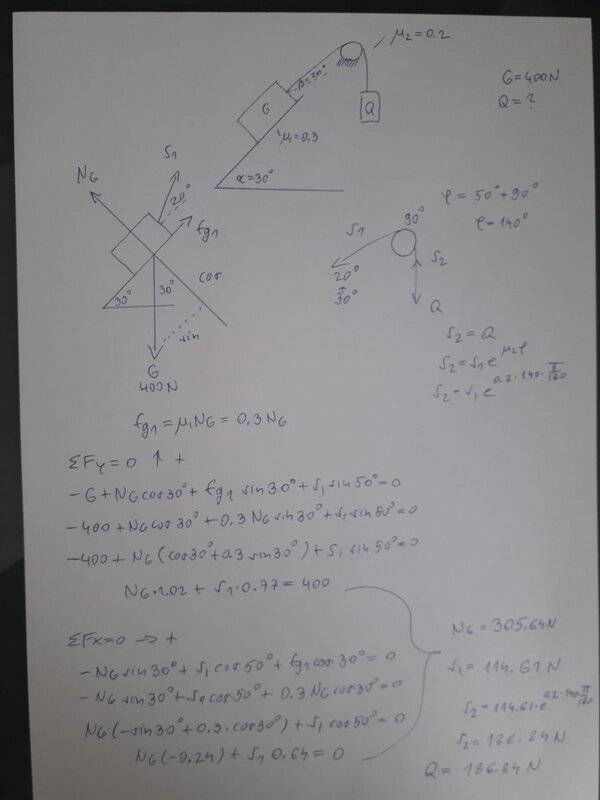 μ2=0.2
G=400N
Q=?
β=30°
G
Q
μ1=0.3
α=30°
S1
NG
20°
fg1
cos
30°
30°
sin
G
400N
φ=50°+90°
φ=140°
90°
S1
S2
20°
30°
Q
S2=Q
S2=S1e^μ2φ
S2=S1e^0.2·140·π/180
fg1=μ1NG=0.3NG
ΣFy=0 ↑ +
-G+NGcos30°+fg1 sin30°+S1 sin50°=0
-400+NGcos30°+0.3NGsin30°+S1sin50°=0
-400+NG(cos30°+0.3sin30°)+S1 sin50°=0
NG·1.02+S1·0.77=400
ΣFx=0 → +
-NGsin30°+S1cos50°+fg1cos30°=0
-NGsin30°+S1cos50°+0.3NGcos30°=0
NG(-sin30°+0.3·cos30°)+S1cos50°=0
NG(-0.24)+S1 0.64=0
NG=305.64N
S1=114.61N
S2=114.61·e^0.2·140π/180
S2=186.84N
Q=186.84N